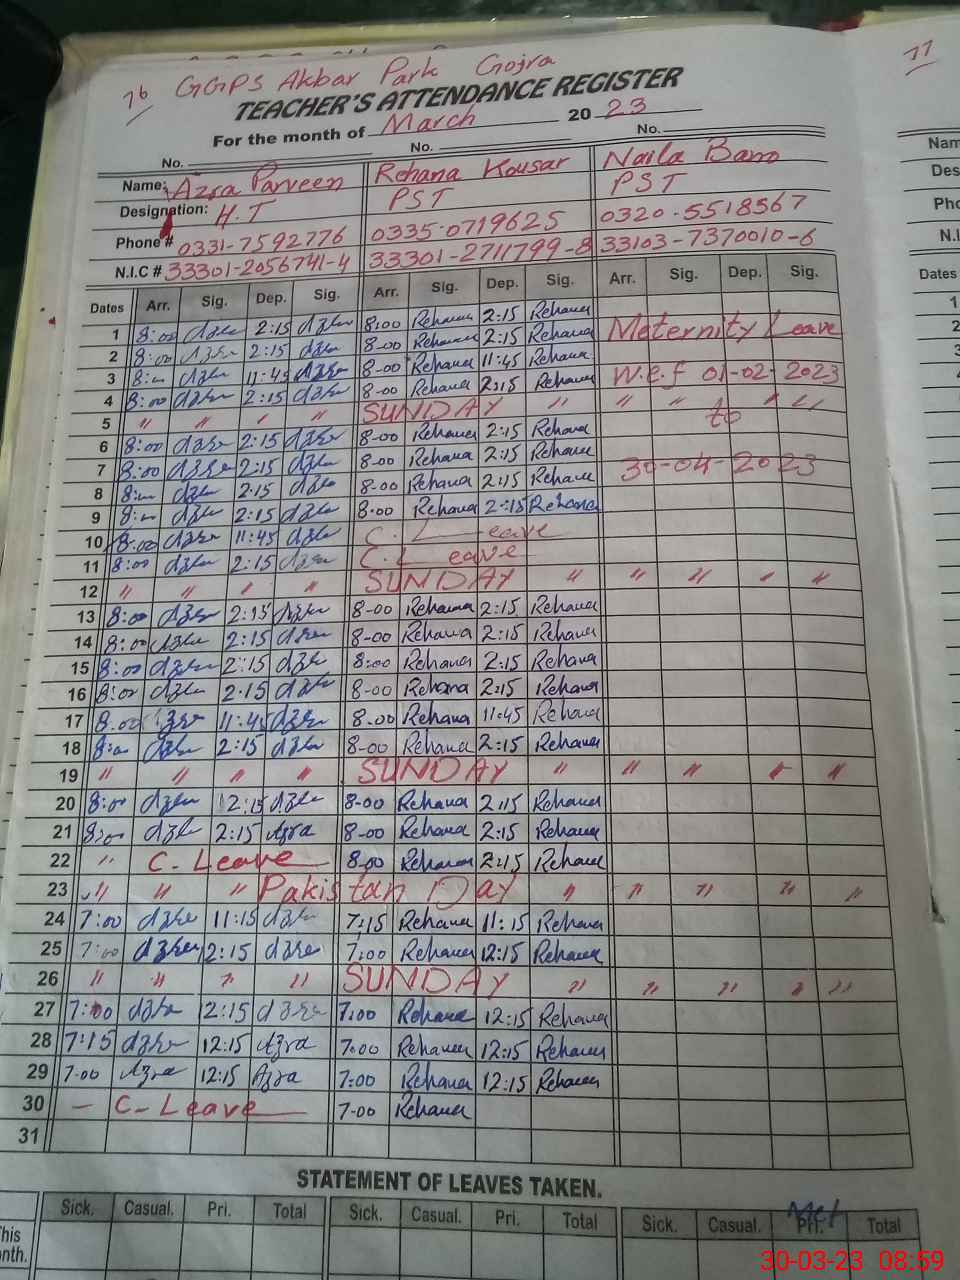 76 GGPS Akbar Park Gojra 77
TEACHER'S ATTENDANCE REGISTER
For the month of March 2023
No. No. No.
Name: Azra Parveen Rehana Kousar Naila Bano Nam
Designation: H.T PST PST Des
Phone # 0331-7592776 0335-0719625 0320-5518567 Pho
N.I.C # 33301-2056741-4 33301-2711799-8 33103-7370010-6 N.I.
Dates Arr. Sig. Dep. Sig. Arr. Sig. Dep. Sig. Arr. Sig. Dep. Sig. Dates
1 8:00 Azra 2:15 Azra 8:00 Rehana 2:15 Rehana Meternity Leave
2 8:00 Azra 2:15 Azra 8-00 Rehana 2:15 Rehana
3 8:00 Azra 11:45 Azra 8-00 Rehana 11:45 Rehana W.e.f 01-02-2023
4 8:00 Azra 2:15 Azra 8-00 Rehana 2:15 Rehana
5 " " " " SUNDAY " " " to " "
6 8:00 Azra 2:15 Azra 8-00 Rehana 2:15 Rehana
7 8:00 Azra 2:15 Azra 8-00 Rehana 2:15 Rehana 30-04-2023
8 8:00 Azra 2:15 Azra 8-00 Rehana 2:15 Rehana
9 8:00 Azra 2:15 Azra 8.00 Rehana 2:15 Rehana
10 8:00 Azra 11:45 Azra C. Leave
11 8:00 Azra 2:15 Azra C. Leave
12 " " " " SUNDAY " " " " "
13 8:00 Azra 2:15 Azra 8-00 Rehana 2:15 Rehana
14 8:00 Azra 2:15 Azra 8-00 Rehana 2:15 Rehana
15 8:00 Azra 2:15 Azra 8:00 Rehana 2:15 Rehana
16 8:00 Azra 2:15 Azra 8-00 Rehana 2:15 Rehana
17 8:00 Azra 11:45 Azra 8-00 Rehana 11:45 Rehana
18 8:00 Azra 2:15 Azra 8-00 Rehana 2:15 Rehana
19 " " " " SUNDAY " " " " "
20 8:00 Azra 12:15 Azra 8-00 Rehana 2:15 Rehana
21 8:00 Azra 2:15 Azra 8-00 Rehana 2:15 Rehana
22 " C-Leave 8-00 Rehana 2:15 Rehana
23 " " " Pakistan Day " " " " "
24 7:00 Azra 11:15 Azra 7:15 Rehana 11:15 Rehana
25 7:00 Azra 12:15 Azra 7:00 Rehana 12:15 Rehana
26 " " " " SUNDAY " " " " "
27 7:00 Azra 12:15 Azra 7:00 Rehana 12:15 Rehana
28 7:15 Azra 12:15 Azra 7:00 Rehana 12:15 Rehana
29 7:00 Azra 12:15 Azra 7:00 Rehana 12:15 Rehana
30 - C-Leave 7-00 Rehana
31
STATEMENT OF LEAVES TAKEN.
Sick. Casual. Pri. Total Sick. Casual. Pri. Total Sick. Casual. Pri. Met Total
This
nth.
30-03-23 08:59